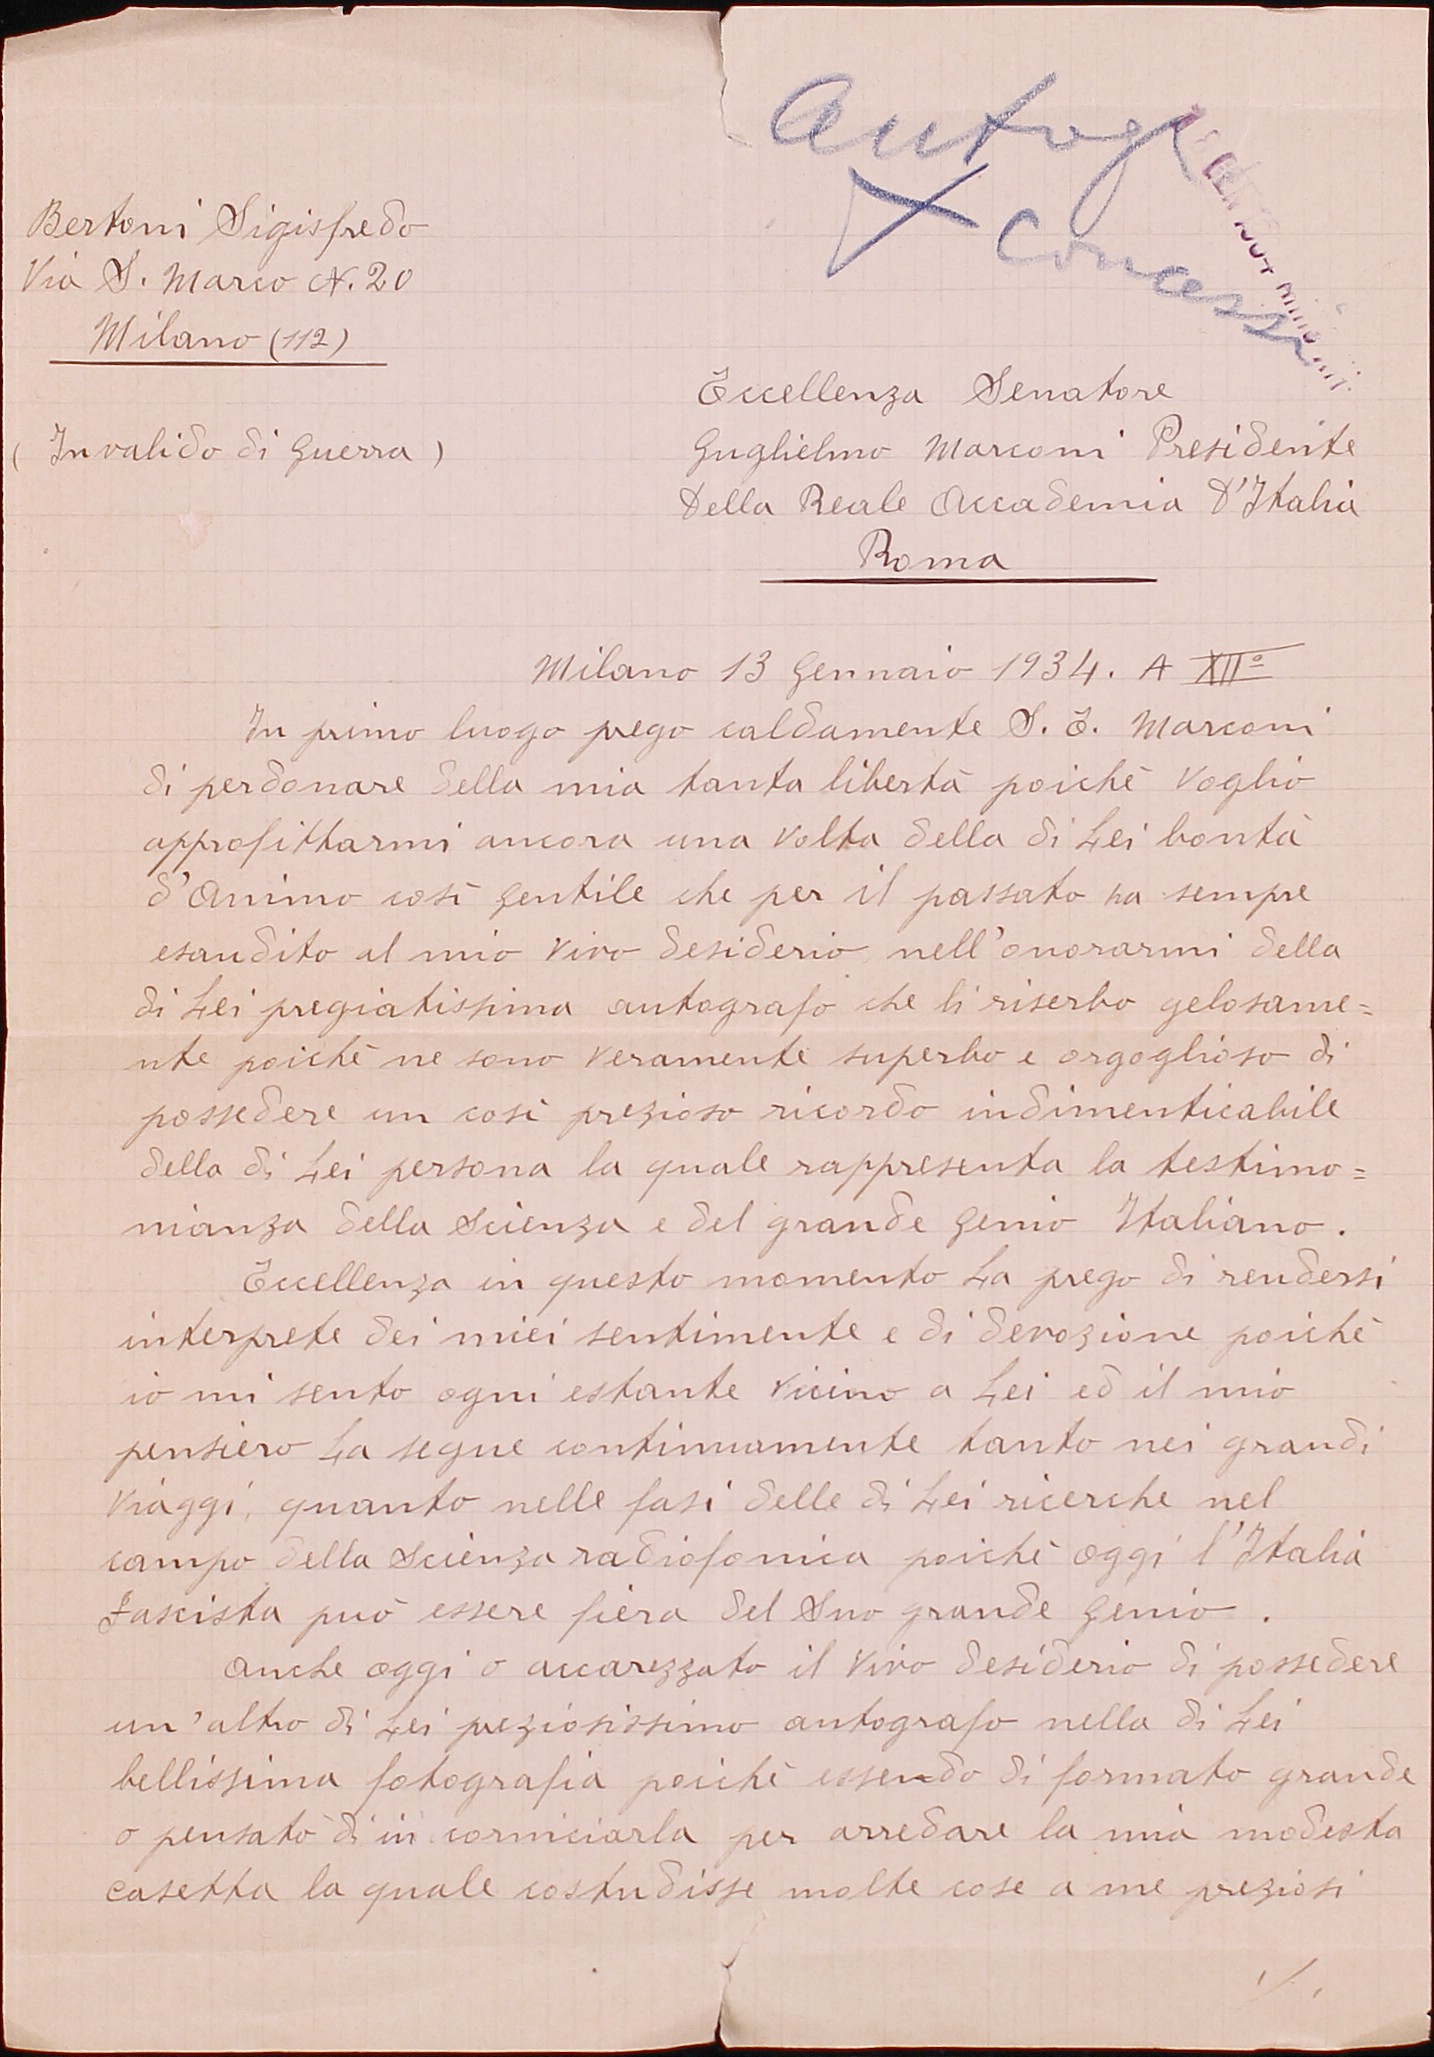 Autogr
X Concesso
Bertoni Sigisfredo
Via S. Marco N. 20
Milano (112)
(Invalido di Guerra)
Eccellenza Senatore
Guglielmo Marconi Presidente
Della Reale Accademia D'Italia
Roma
Milano 13 Gennaio 1934. A XIIº
In primo luogo prego caldamente S. E. Marconi
di perdonare della mia tanta libertà poichè voglio
approfittarmi ancora una volta della di Lei bontà
d'Animo così gentile che per il passato ha sempre
esaudito al mio vivo desiderio, nell'onorarmi della
di Lei pregiatissima autografo che li riserbo gelosame=
nte poichè ne sono veramente superbo e orgoglioso di
possedere un così prezioso ricordo indimenticabile
della di Lei persona la quale rappresenta la testimo=
nianza della Scienza e del grande Genio Italiano.
Eccellenza in questo momento La prego di rendersi
interprete dei miei sentimente e di devozione poichè
io mi sento ogni estante vicino a Lei ed il mio
pensiero La segue continuamente tanto nei grandi
viaggi, quanto nelle fasi delle di Lei ricerche nel
campo della Scienza radiofonica poichè oggi l'Italia
Fascista può essere fiera del Suo grande Genio.
Anche oggi o accarezzato il vivo desiderio di possedere
un'altro di Lei preziosissimo autografo nella di Lei
bellissima fotografia poichè essendo di formato grande
o pensato di in corniciarla per arredare la mia modesta
casetta la quale costudisse molte cose a me preziosi
./.